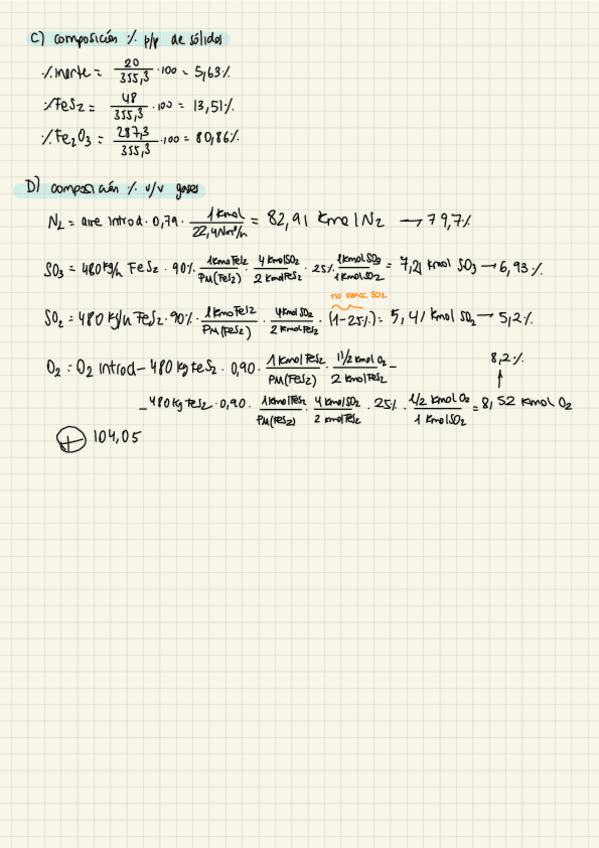 C) composición % p/p de sólidos
% inerte = 20/355,3 · 100 = 5,63%
% FeS2 = 48/355,3 · 100 = 13,51%
% Fe2O3 = 287,3/355,3 · 100 = 80,86%
D) composición % v/v gases
N2 = aire introd · 0,79 · 1 kmol/22,4 Nm³/h = 82,91 kmol N2 → 79,7%
SO3 = 480 kg/h FeS2 · 90% · 1 kmol FeS2/PM(FeS2) · 4 kmol SO2/2 kmol FeS2 · 25% · 1 kmol SO3/1 kmol SO2 = 7,21 kmol SO3 → 6,93%
SO2 = 480 kg/h FeS2 · 90% · 1 kmol FeS2/PM(FeS2) · 4 kmol SO2/2 kmol FeS2 · (1-25%) = 5,41 kmol SO2 → 5,2%
O2 = O2 introd - 480 kg FeS2 · 0,90 · 1 kmol FeS2/PM(FeS2) · 11/2 kmol O2/2 kmol FeS2 -
8,2%
- 480 kg FeS2 · 0,90 · 1 kmol FeS2/PM(FeS2) · 4 kmol SO2/2 kmol FeS2 · 25% · 1/2 kmol O2/1 kmol SO2 = 8,52 kmol O2
+ 104,05